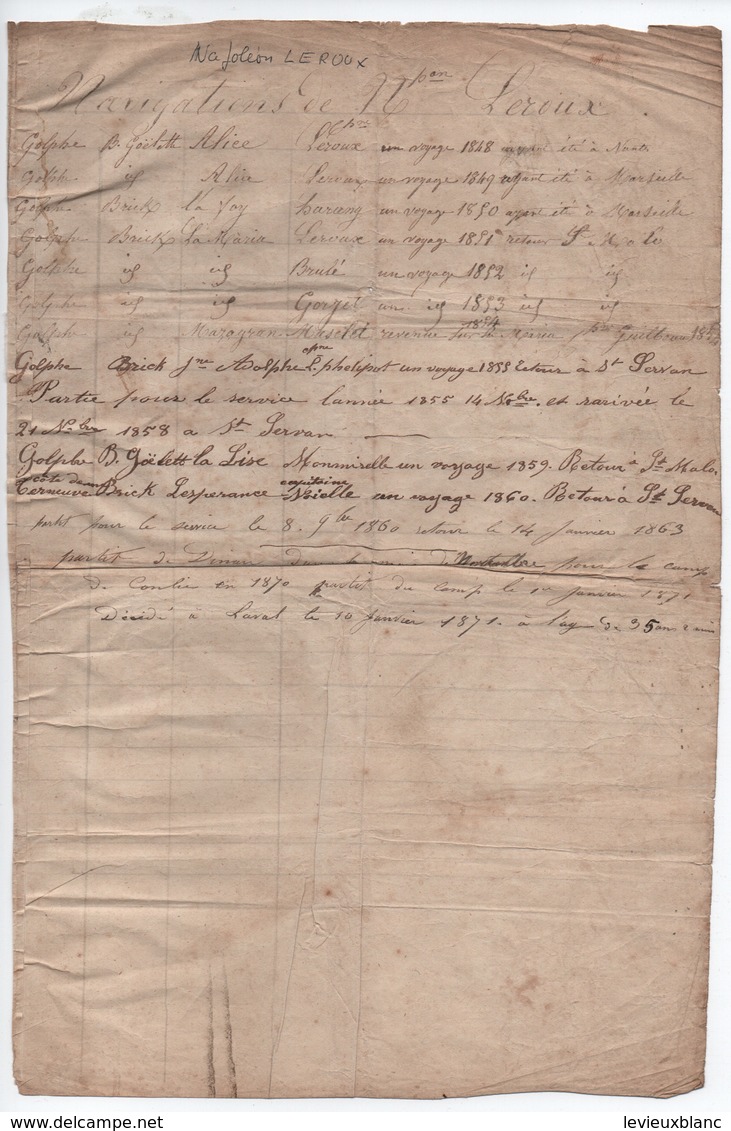 Napoléon LEROUX
Navigations de Npon Leroux
Golphe B. Goëlett Alice Cpne Leroux un voyage 1848 ayant été à Nante
Golphe id Alice Leroux un voyage 1849 ayant été à Marseille
Golphe Brick La Foy harang un voyage 1850 ayant été à Marseille
Golphe Brick La Maria Leroux un voyage 1851 retour St Malo
Golphe id id Brulé un voyage 1852 id id
Golphe id id un id 1853 id id
Golphe id revenue sur 1854 Maria
Golphe Brick Jne Adolphe cpne phelipot un voyage 1855 retour à St Servan
Partie pour le service lannée 1855 14 Nobre et rarivée le
21 Nobre 1858 a St Servan
Golphe B. Goëlett la Lise Monmirelle un voyage 1859. Retour à St Malo.
Terneuve Brick Lesperance capitaine Noielle un voyage 1860. Retour à St Servan
partit pour le service le 8. 9bre 1860 retour le 14 Janvier 1863
partit de Dinan pour le camp
de Conlie en 1870 du camp le 1er Janvier 1871
Décidé à Laval le 10 Janvier 1871. à l'age de 35 ans
levieuxblanc.com